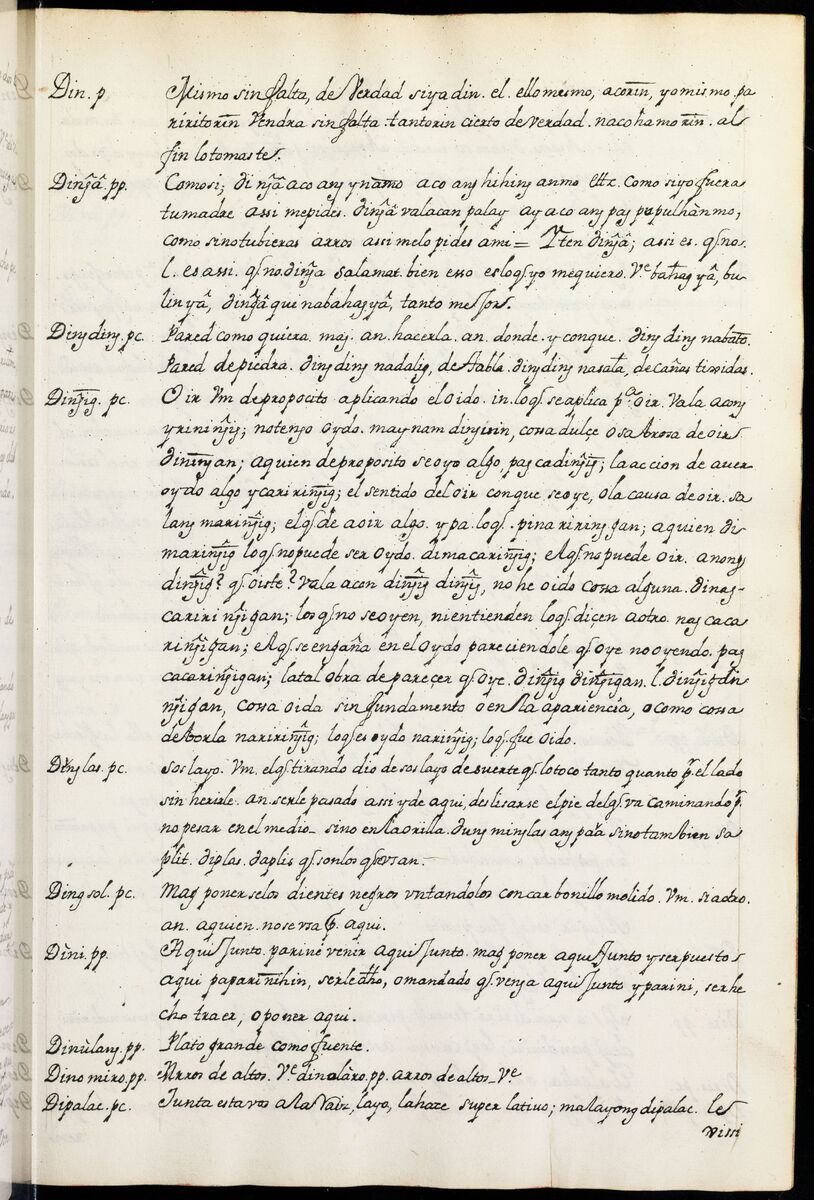 Din. p. Mismo sin falta, de Verdad siya din. el. ello mesmo, acorin, yo mismo. pa
riritorin Vendra sin falta. tantorin cierto de verdad. nacoha mo rin. al
fin lo tomastes.
Dinga. pp. Como si; di nga aco ang ynamo aco ang hihing anmo etc. como si yo fuera
tu madre assi me pides. dinga vala can palay ay aco ang pag pupulhan mo,
como si no tubieras arros assi me lo pides ami = Yten dinga; assi es. qe no s.
l. es assi. qe no. dinga salamat. bien esso es lo qe yo me quiero. Ve. bahag ya, bu
lin ya, dinga que nabahag ya, tanto mejor.
Dingding. pc. Pared como quiera. mag. an. hacerla. an. donde. y conque. dingding na bato.
Pared de piedra. dingding na dalig, de tabla. dingding na sala, de cañas texidas.
Dingig. pc. Oir Vm de proposito aplicando el oido. in. lo qe se aplica pa. oir. Vala acong
yriningig; no tengo oydo. may nam dingirin, cossa dulçe o sabrosa de oir
diningan; a quien de proposito se oyo algo, pag ca dingig; la accion de aver
oydo algo ycariringig; el sentido del oir con que, se oye, o la causa de oir. sa
lang maringig; el qe de a oir algo. y pa. lo qe. pinariringgan; a quien di
maringig lo qe no puede ser oydo. di macaringig; el qe no puede oir. anong
dingig? qe oiste? Vala acon dingig dingig, no he oido cossa alguna. di nag-
caririnigan; los qe no se oyen, ni entienden lo qe diçen a otro. nag caca
ringigan; el qe se engaña en el oydo pareciendole qe oye no oyendo. pag
cacaringigan; la tal obra de pareçer qe oye. dingig dingigan. l. dingig din
ngigan, cossa oida sin fundamento o en la apariencia, o como cossa
de borla nariringig; lo qe es oydo naringig; lo qe fue oido.
Dinglas. pc. soslayo. Vm. el qe tirando dio de soslayo de suerte qe lo toco tanto quanto pr. el lado
sin herirle. an. serle pasado assi y de aqui, deslisarse el pie del qe va caminando pr.
no pesar en el medio – sino en la orilla. dungminglas ang paa sino tambien sa
plit. diplas. daplis qe son los qe usan.–
Dingsol. pc. Mag ponerse los dientes negros untandolos con carbonillo molido. Vm. si a otro.
an. a quien. no se usa pr. aqui.
Dini. pp. Aqui junto. pariné venir aqui junto. mag poner aqui junto y ser puestos
aqui paparinihin, serle dho, o mandado qe venga aqui junto y parini, ser he
cho traer, o poner aqui.
Dinulang. pp. Plato grande como fuente.
Dinomiro. pp. Arros de altos. Ve. dinolàro. pp. arros de altos. Ve
Dipalac. pc. Junta esta vos a la raiz, layo, la haze superlativo; malayong dipalac. le
xissi